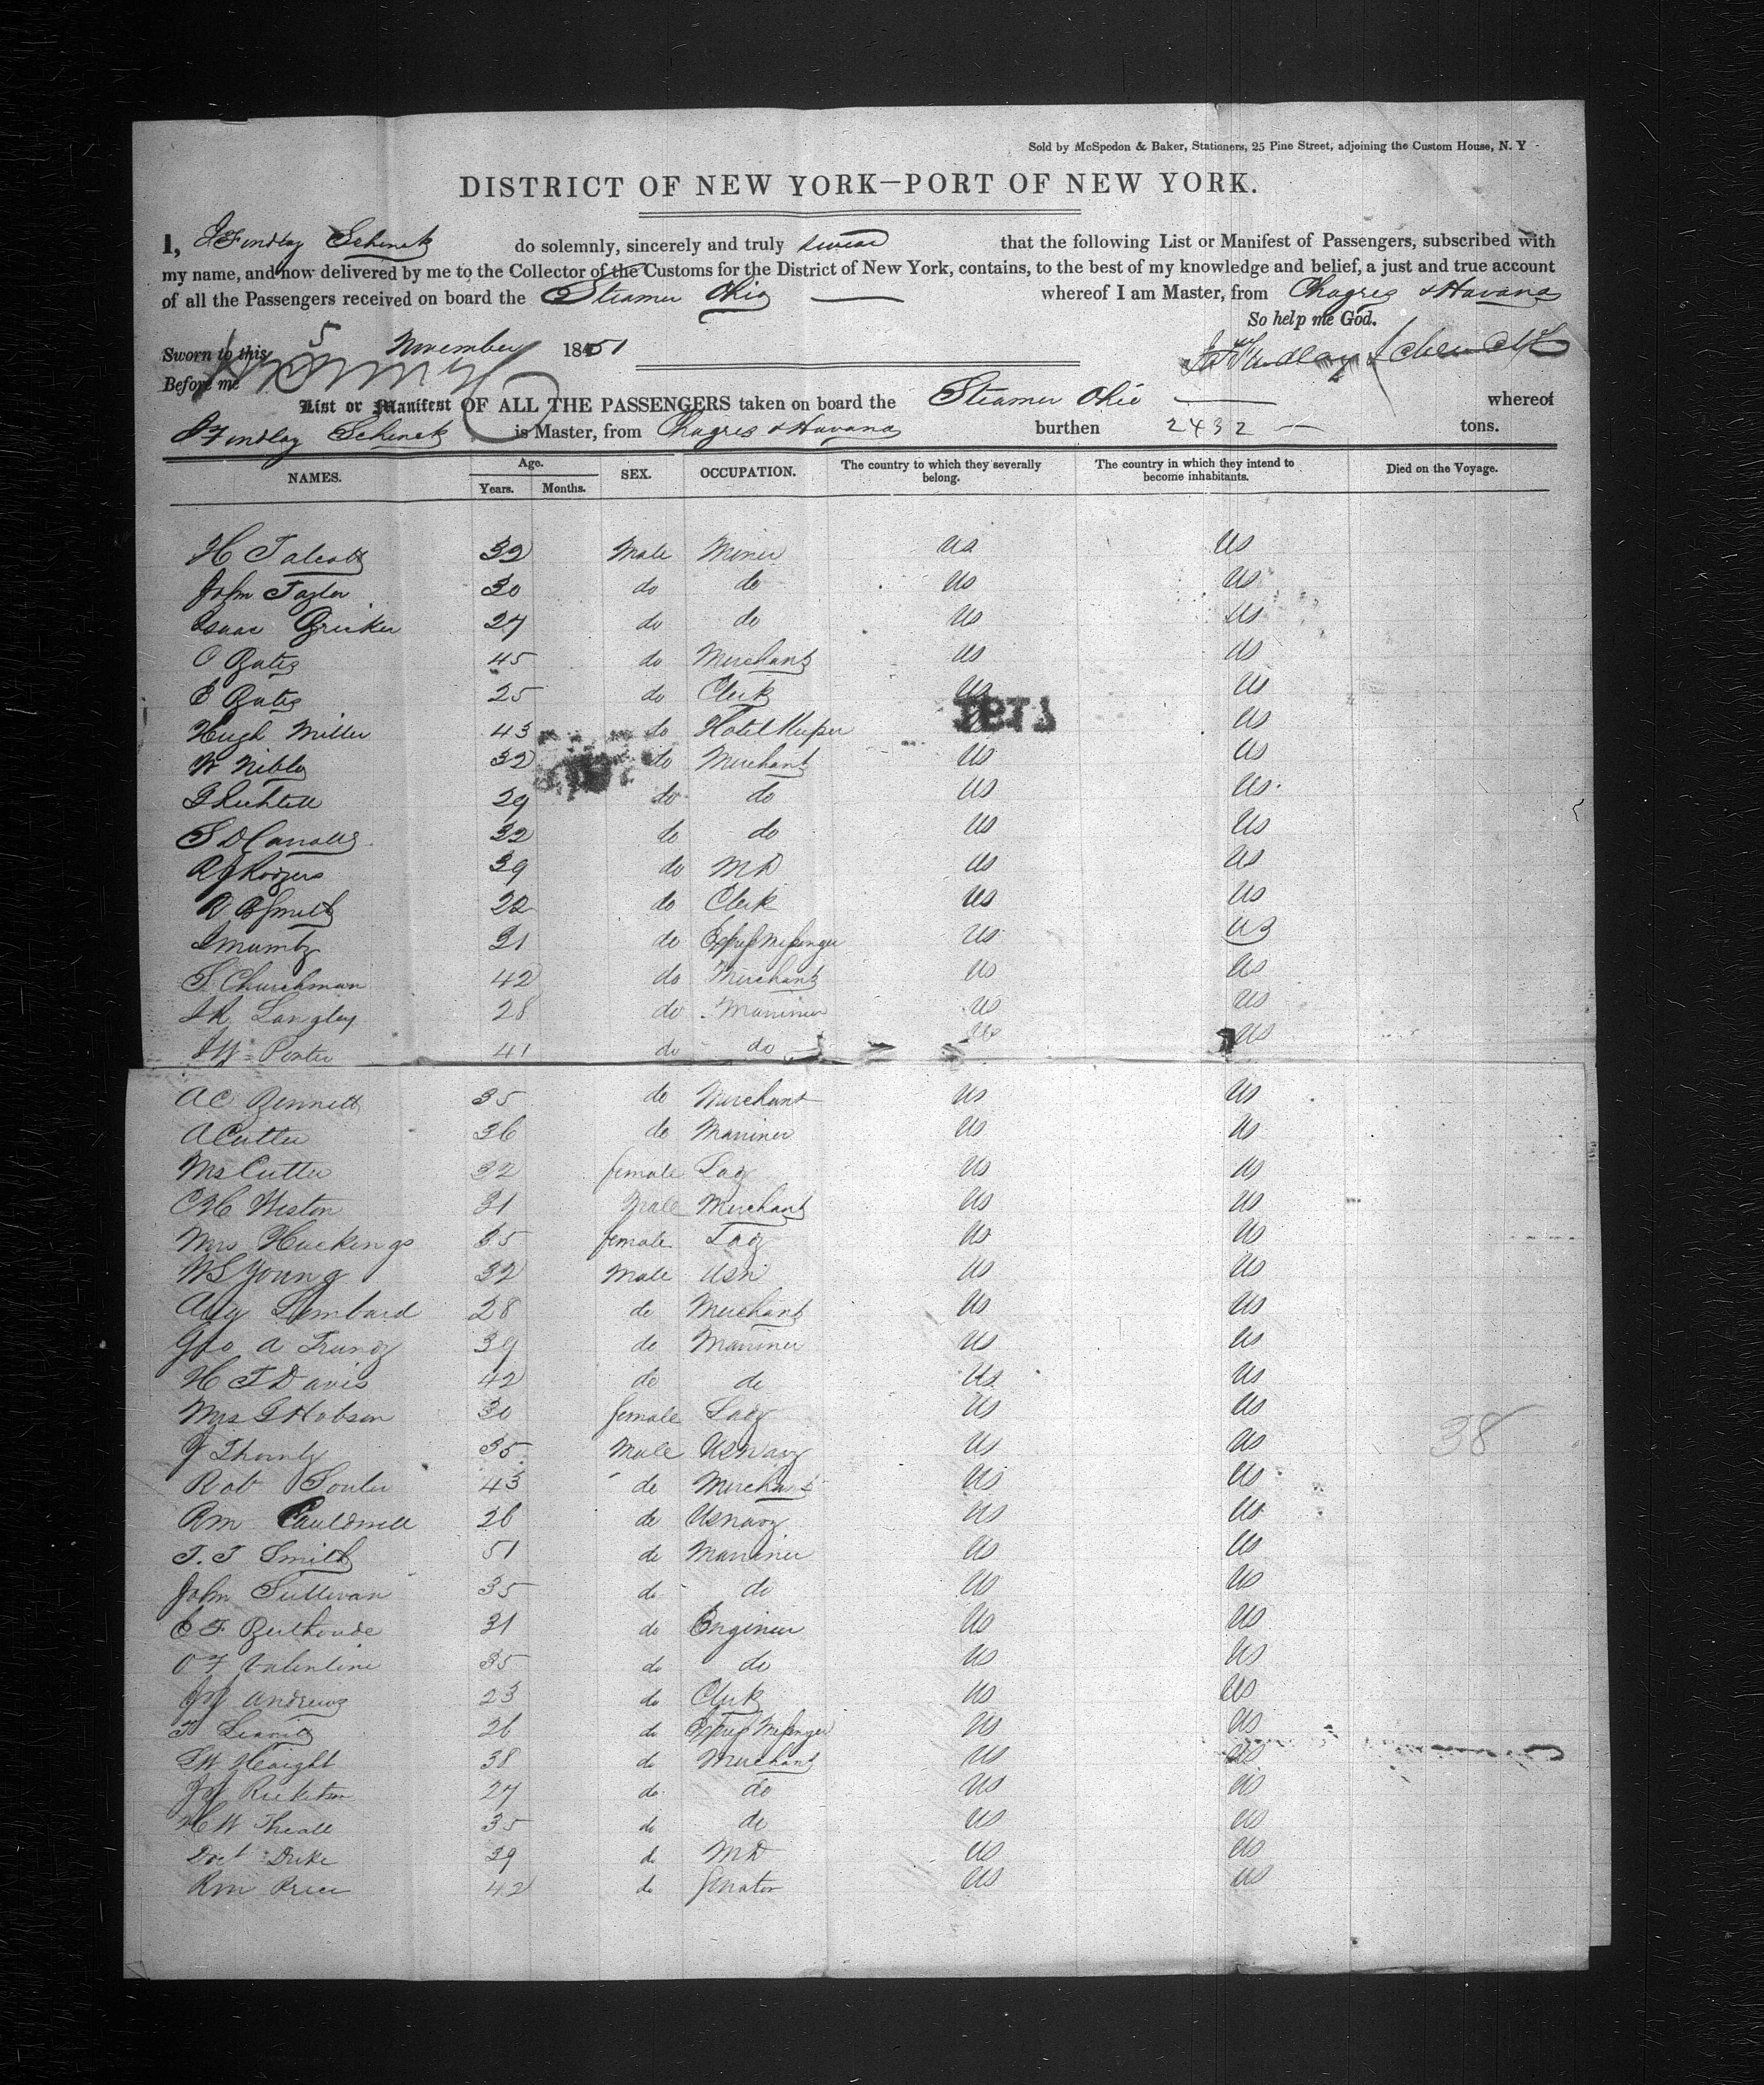 Sold by McSpedon & Baker, Stationers, 25 Pine Street, adjoining the Custom House, N. Y
DISTRICT OF NEW YORK—PORT OF NEW YORK.
I, J Findlay Schenck do solemnly, sincerely and truly swear that the following List or Manifest of Passengers, subscribed with
my name, and now delivered by me to the Collector of the Customs for the District of New York, contains, to the best of my knowledge and belief, a just and true account
of all the Passengers received on board the Steamer Ohio whereof I am Master, from Chagres & Havana
So help me God.
Sworn to this 5 November 1851 Js Findlay Schenck
Before me
List or Manifest OF ALL THE PASSENGERS taken on board the Steamer Ohio whereof
J Findlay Schenck is Master, from Chagres & Havana burthen 2432 tons.
NAMES. Age. Years. Months. SEX. OCCUPATION. The country to which they severally belong. The country in which they intend to become inhabitants. Died on the Voyage.
H Talcott 32 Male Miner US US
John Taylor 30 do do US US
Isaac 27 do do US US
O Bates 45 do Merchant US US
E Bates 25 do Clerk US US
Hugh Miller 43 do Hotel Keeper US
W Niblo 32 do Merchant US US
29 do do US US
S D 32 do do US US
R J Rodgers 39 do MD US US
R B Smith 22 do Clerk US US
31 do Express Messenger US US
S Churchman 42 do Merchant US US
J R Langley 28 do Marriner US US
J W Porter 41 do do US US
A C Bennett 35 do Merchant US US
A Cutter 36 do Marriner US US
Mrs Cutter 32 female Lady US US
C H Weston 31 Male Merchant US US
Mrs Huckings 35 female Lady US US
W S Young 32 Male USN US US
Aug Lombard 28 do Merchant US US
Geo A 39 do Marriner US US
H T Davis 42 do do US US
Mrs G Hobson 30 female Lady US US
J 35 Male US Navy US US 38
Rob Souter 43 do Merchant US US
Rm Cauldwell 26 do US navy US US
T. T Smith 51 do Marriner US US
John Sullivan 35 do do US US
E F Berthoude 31 do Enginer US US
O F Valentine 35 do do US US
J W Andrews 23 do Clerk US US
T Leavitt 26 do Express Messenger US US
S W Haight 38 do Merchant US US
J W Ricketson 27 do do US US
H W Theall 35 do do US US
Doct Duke 39 do MD US US
Rm Price 42 do Senator US US